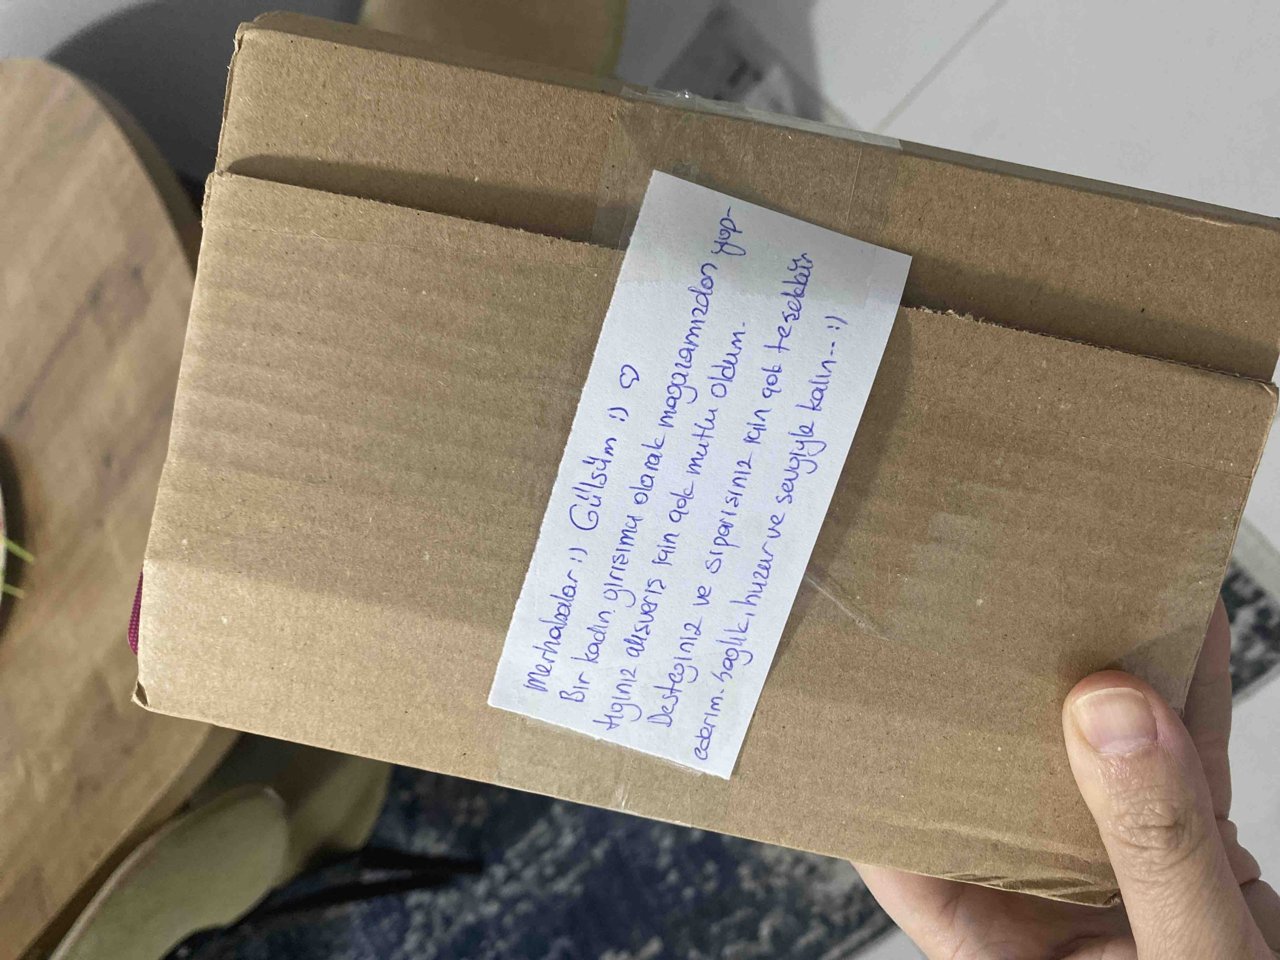 Merhabalar :) Gülsüm :) ♡
Bir kadın girişimci olarak mağazamızdan yap-
tığınız alışveriş için çok mutlu oldum.
Desteğiniz ve siparişiniz için çok teşekkür
ederim. Sağlık, huzur ve sevgiyle kalın.. :)